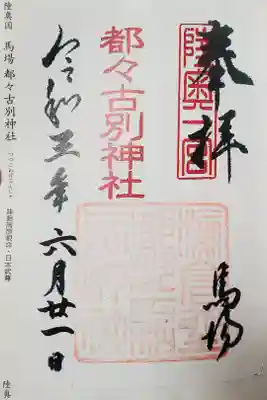 奉拝
陸奥一宮
馬場
都々古別神社
令和三年六月廿一日
陸奥国 馬場 都々古別神社
陸奥